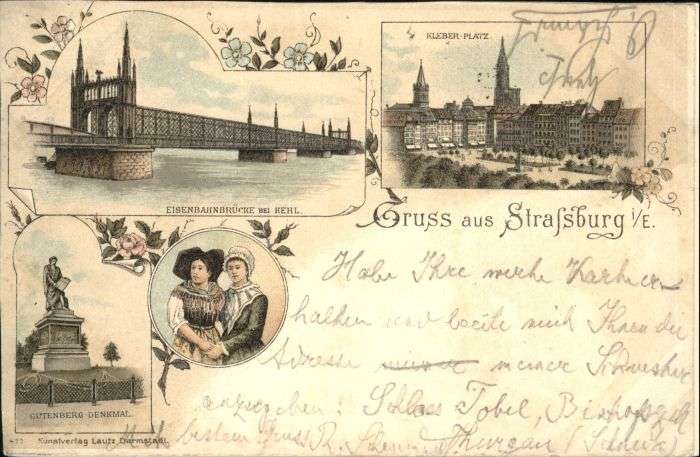 KLEBER-PLATZ.
EISENBAHNBRÜCKE BEI KEHL.
Gruss aus Straßburg i/E.
Habe Ihre werthe Karte er-
halten und beeile mich Ihnen die
Adresse meiner Schwester
anzugeben: Schloss Tobel, Bischofszell
Mit bestem Gruss R. Thurgau (Schweiz)
GUTENBERG DENKMAL.
Kunstverlag Lautz, Darmstadt.